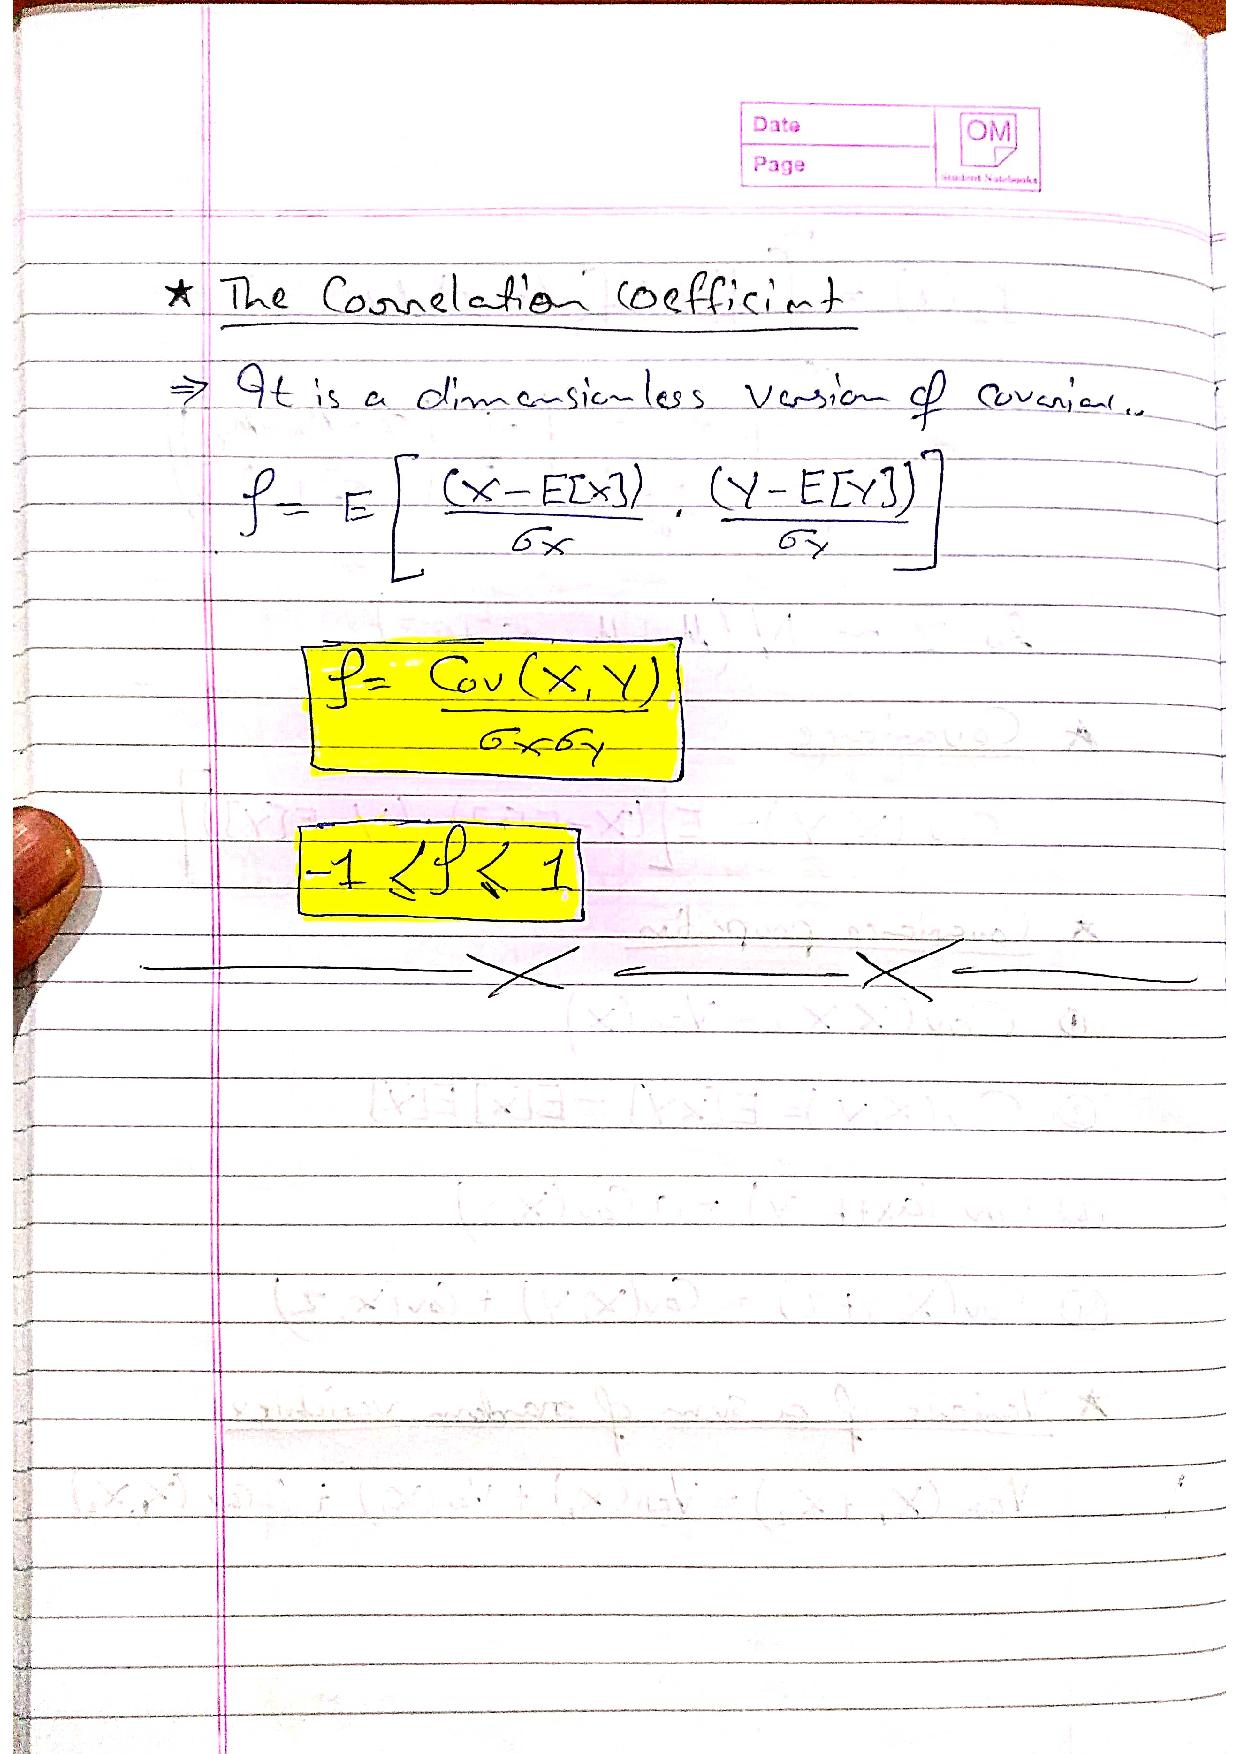 Date
OM
Page
Student Notebooks
★ The Correlation Coefficient
⇒ It is a dimensionless version of
ρ = E[(X-E[X])/σx . (Y-E[Y])/σy]
ρ = Cov(X,Y)/σxσy
-1 ≤ ρ ≤ 1